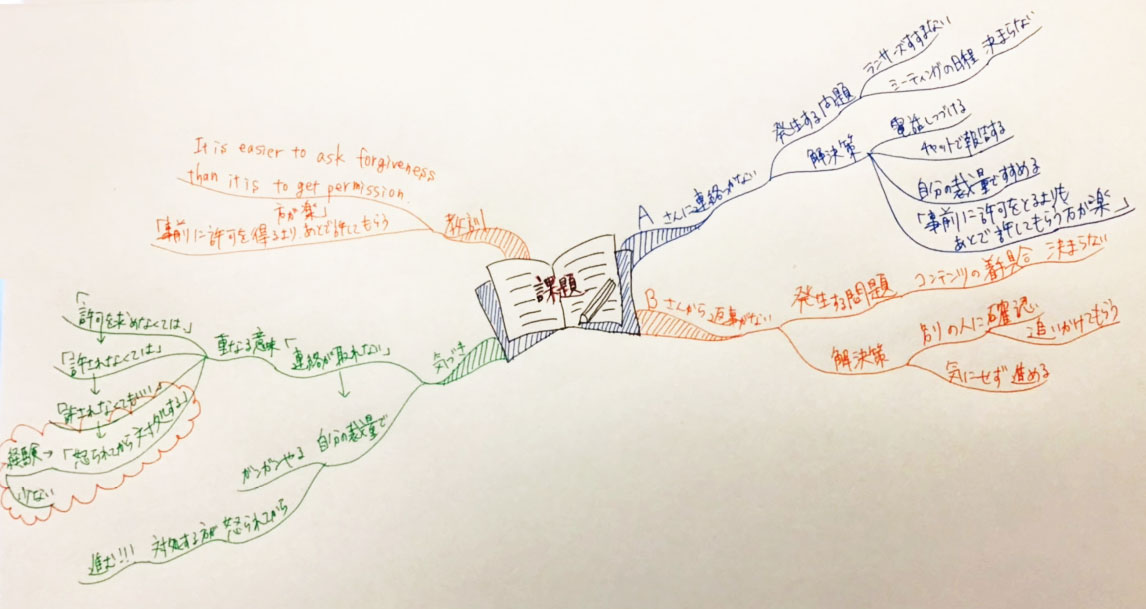 課題
Aさんに連絡つかない
発生する問題
ランサーズすすまない
ミーティングの日程 決まらない
解決策
電話しつづける
チャットで報告する
自分の裁量ですすめる
「事前に許可をとるよりも
あとで許してもらう方が楽」
Bさんから返事がない
発生する問題
コンテンツの着具合 決まらない
解決策
別の人に確認
追いかけてもらう
気にせず進める
気づき
「連絡が取れない」
重なる意味
「許可を求めなくては」
↓
「許されなくては」
↓
「許されなくてもいい」
↓
「怒られてから対処する」
経験→
少ない
↓
自分の裁量で
ガンガンやる
怒られてから
対処する方が
進む!!!
教訓
It is easier to ask forgiveness
than it is to get permission.
「事前に許可を得るより あとで許してもらう
方が楽」